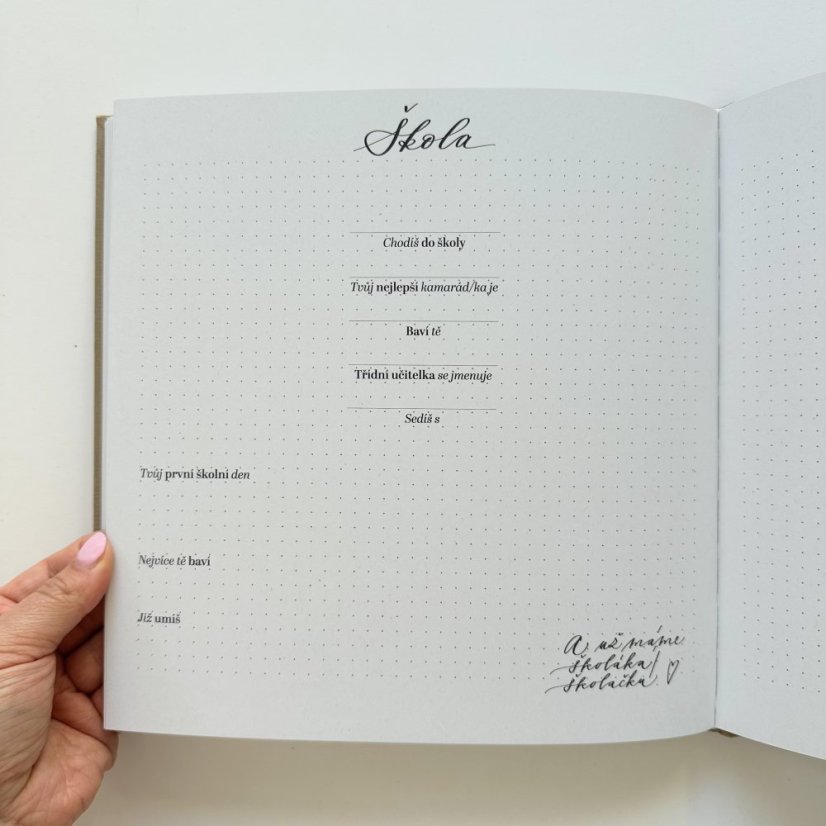 Škola
Chodíš do školy
Tvůj nejlepší kamarád/ka je
Baví tě
Třídní učitelka se jmenuje
Sedíš s
Tvůj první školní den
Nejvíce tě baví
Již umíš
A už máme
školáka/
školačku.